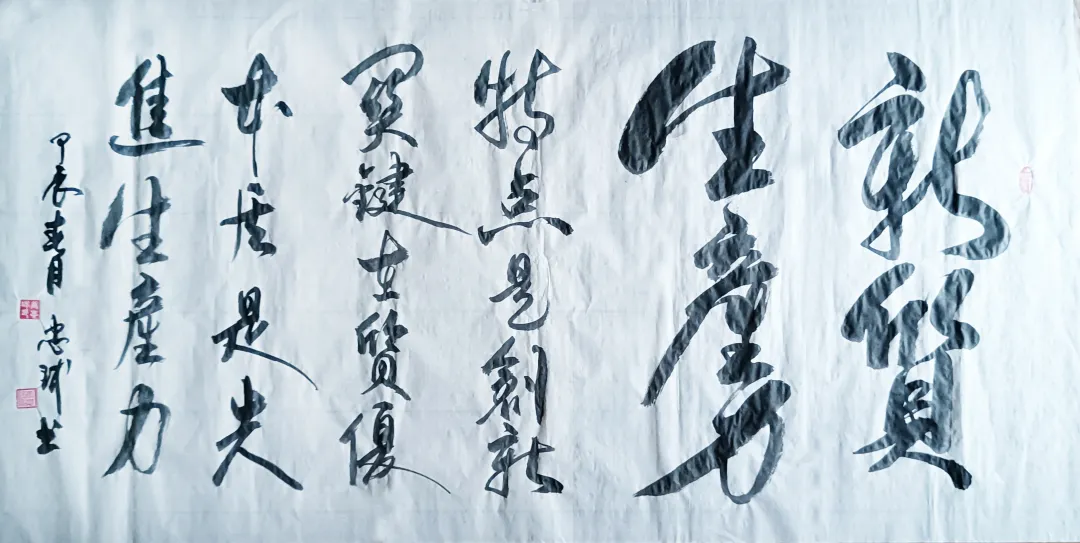 新質
生產力
特点是創新
関鍵在質優
本质是先
進生產力
甲辰春月 忠斌书